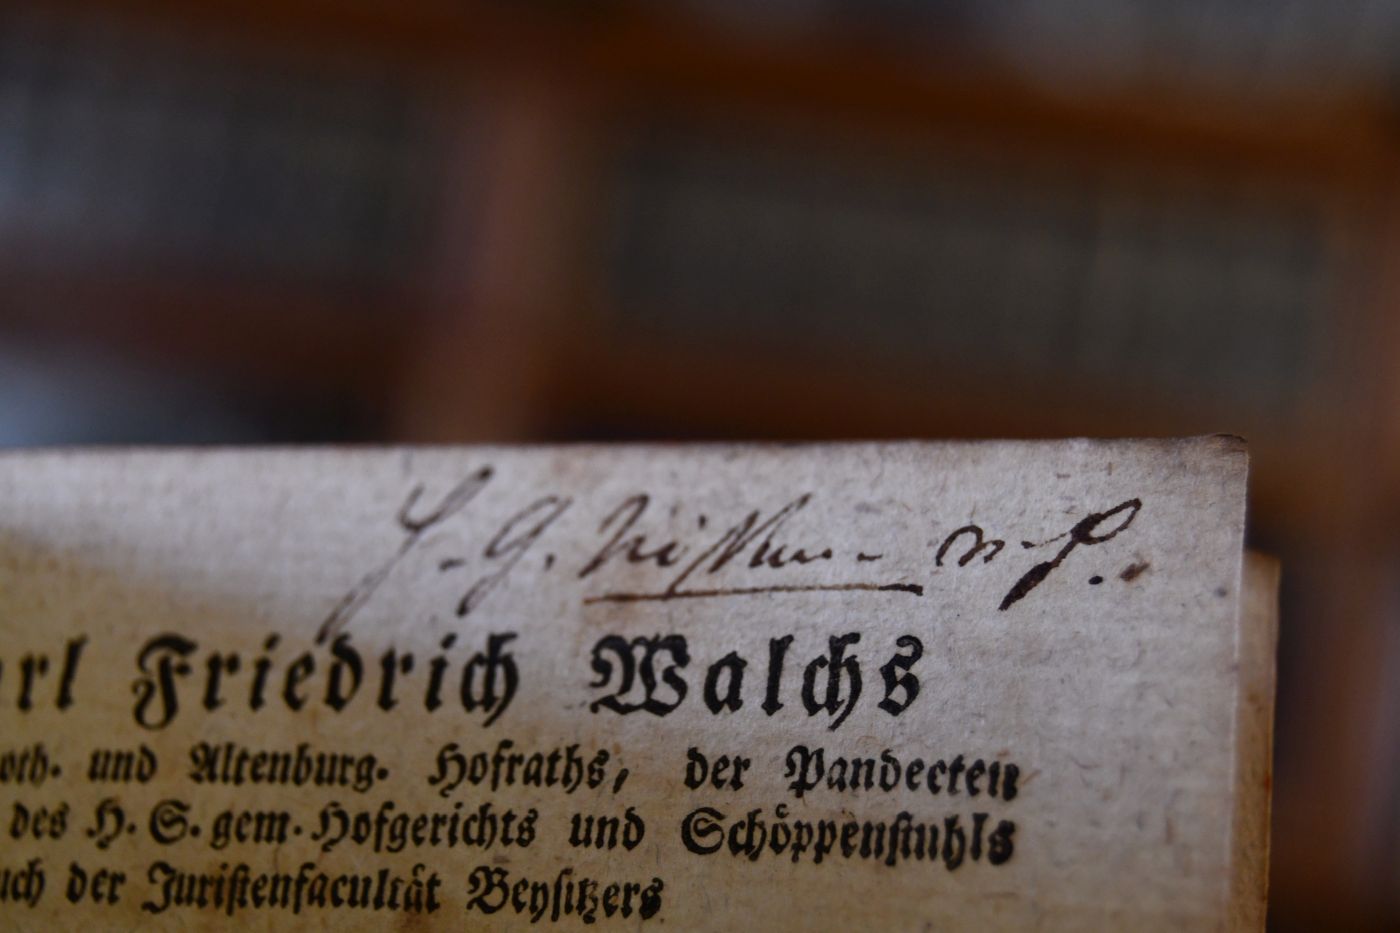 arl Friedrich Walchs
oth. und Altenburg. Hofraths, der Pandecten
des H. S. gem. Hofgerichts und Schöppenstuhls
uch der Juristenfacultät Beysitzers